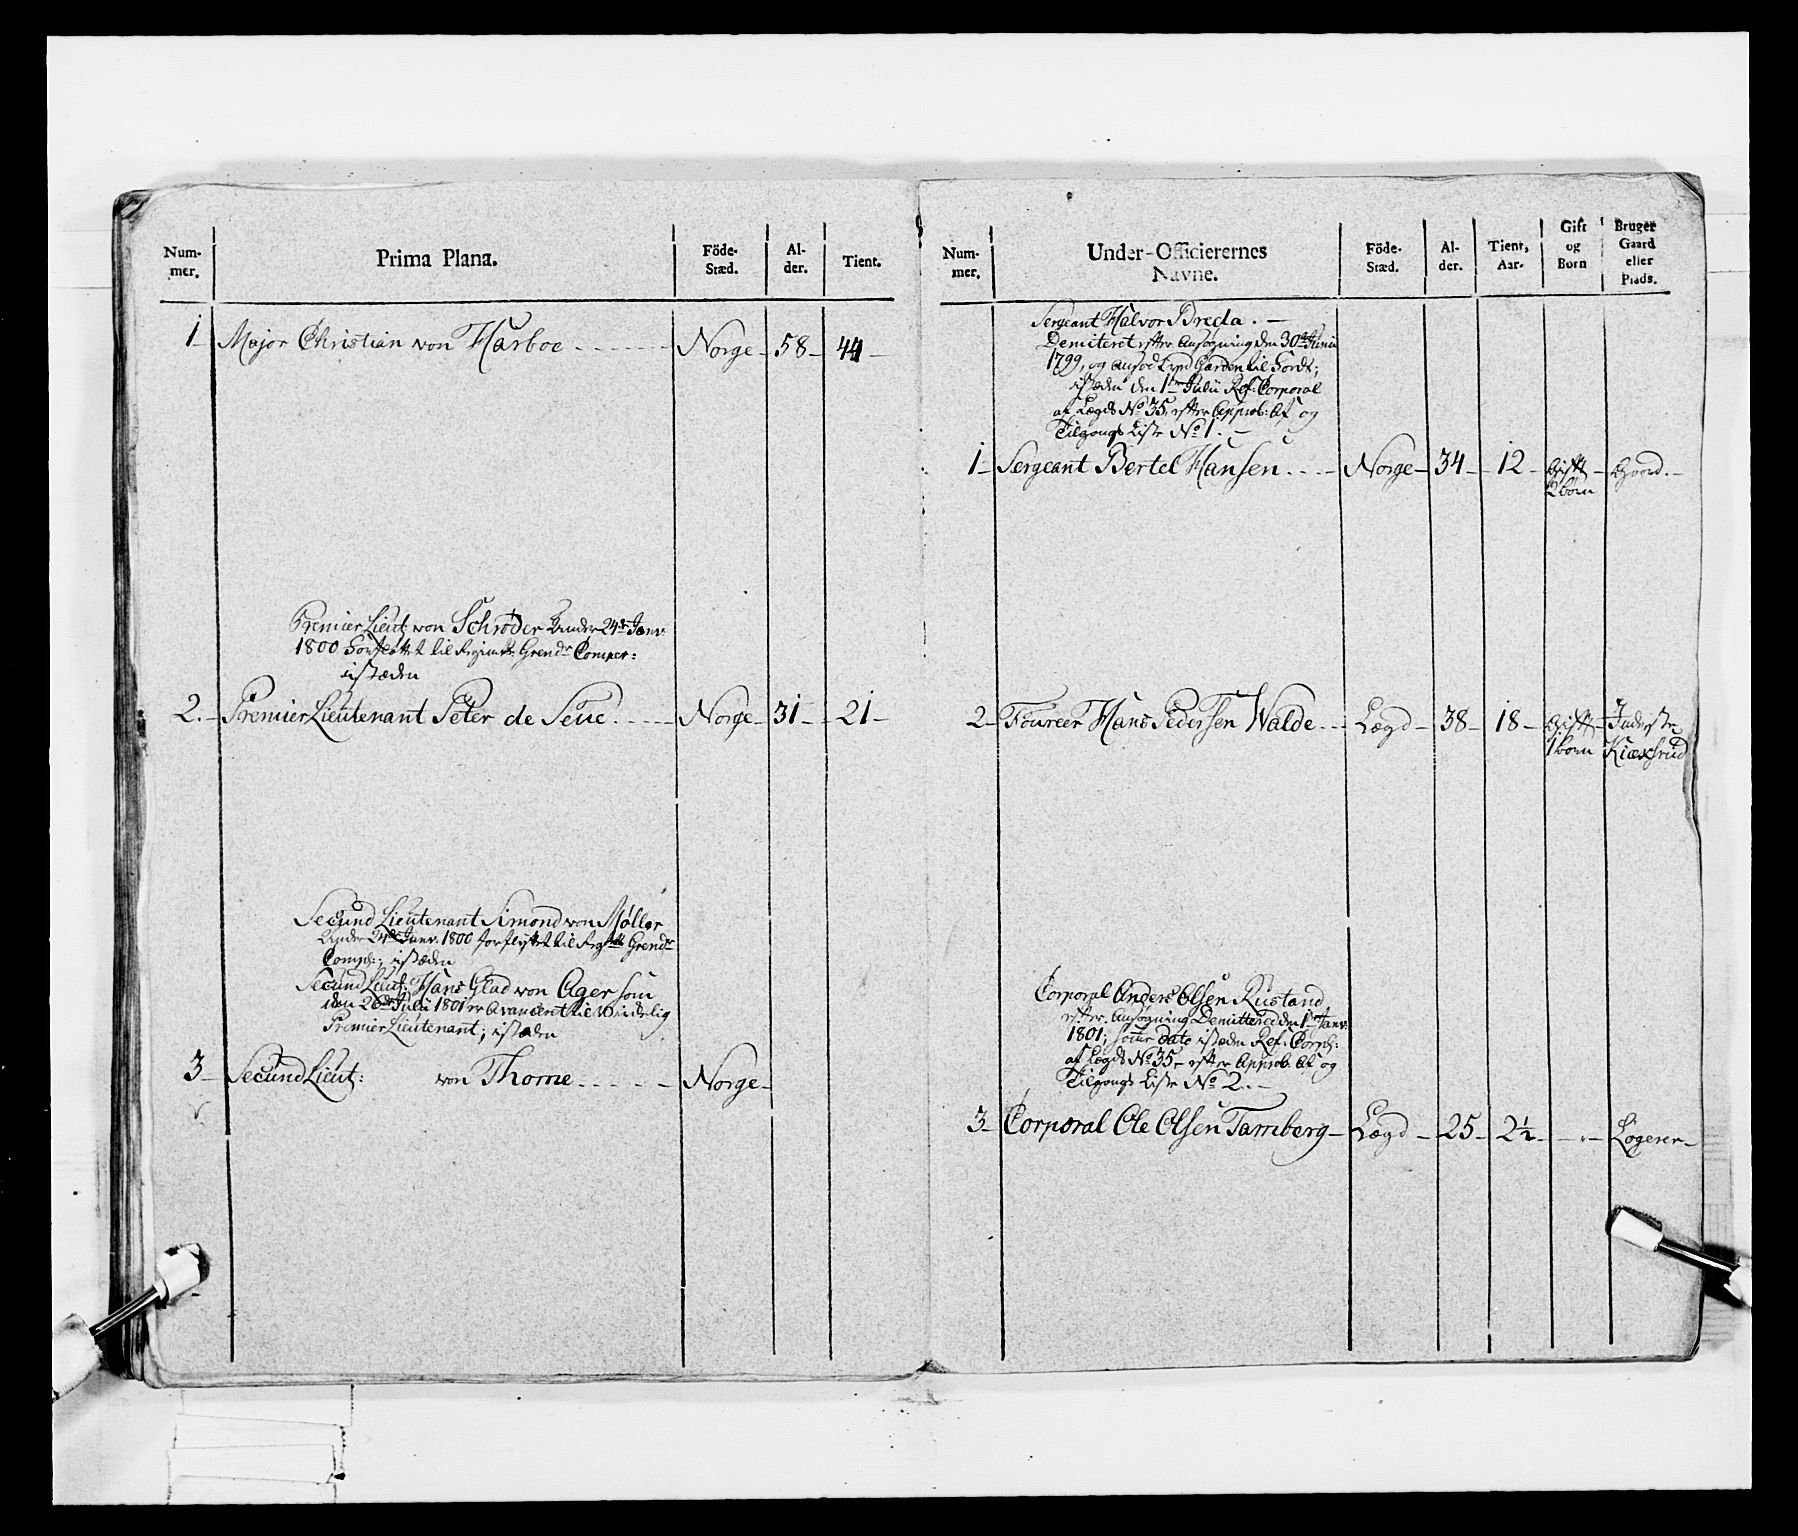 Num-
mer.
Prima Plana.
Föde-
Stæd.
Al-
der.
Tient.
1 Major Christian von Harboe Norge 58 44
Premier Lieut: von Schrøder under 24de Janv:
1800 forfløttet til Regimts Grendr Comper:
istæden
2. Premier Lieutenant Peter de Seue Norge 31 21
Secund Lieutenant Simond von Møller
under 24de Janv: 1800 forflyttet til Grendr
Comp:, istæden
Secund Lieut: Hans Glad von Ager som
den 26de Julii 1801 er Avanceret til Virkelig
Premier Lieutenant; istæden
3 Secund Lieut: von Thorne Norge
Num-
mer.
Under-Officierernes
Navne.
Föde-
Stæd.
Al-
der.
Tient,
Aar.
Gift
og
Børn
Bruger
Gaard
eller
Plads.
Sergeant Halvor Breda.
Demiteret efter Ansøgning den 30te Junii
1799, og til
istæden den 1te Julii Ref: Corporal
af Lægds No 35, efter Approb: Af og
Tilgangs Liste No 1.
1 Sergeant Bertel Hansen Norge 34 12 Gift Gaard.
2 børn
2 Foureer Hans Pedersen Walde Lægd 38 18 Gift Inderste
1 barn Kiæxsrud
Corporal Anders Olsen Rustand
efter Ansøgning Demittered den 1te Janv:
1801; samme dato istæden Ref: Corpl:
af Lægds No 35 efter Approb: Af og
Tilgangs Liste No 2.
3 Corporal Ole Olsen Tamberg Lægd 25 2½ Logerer